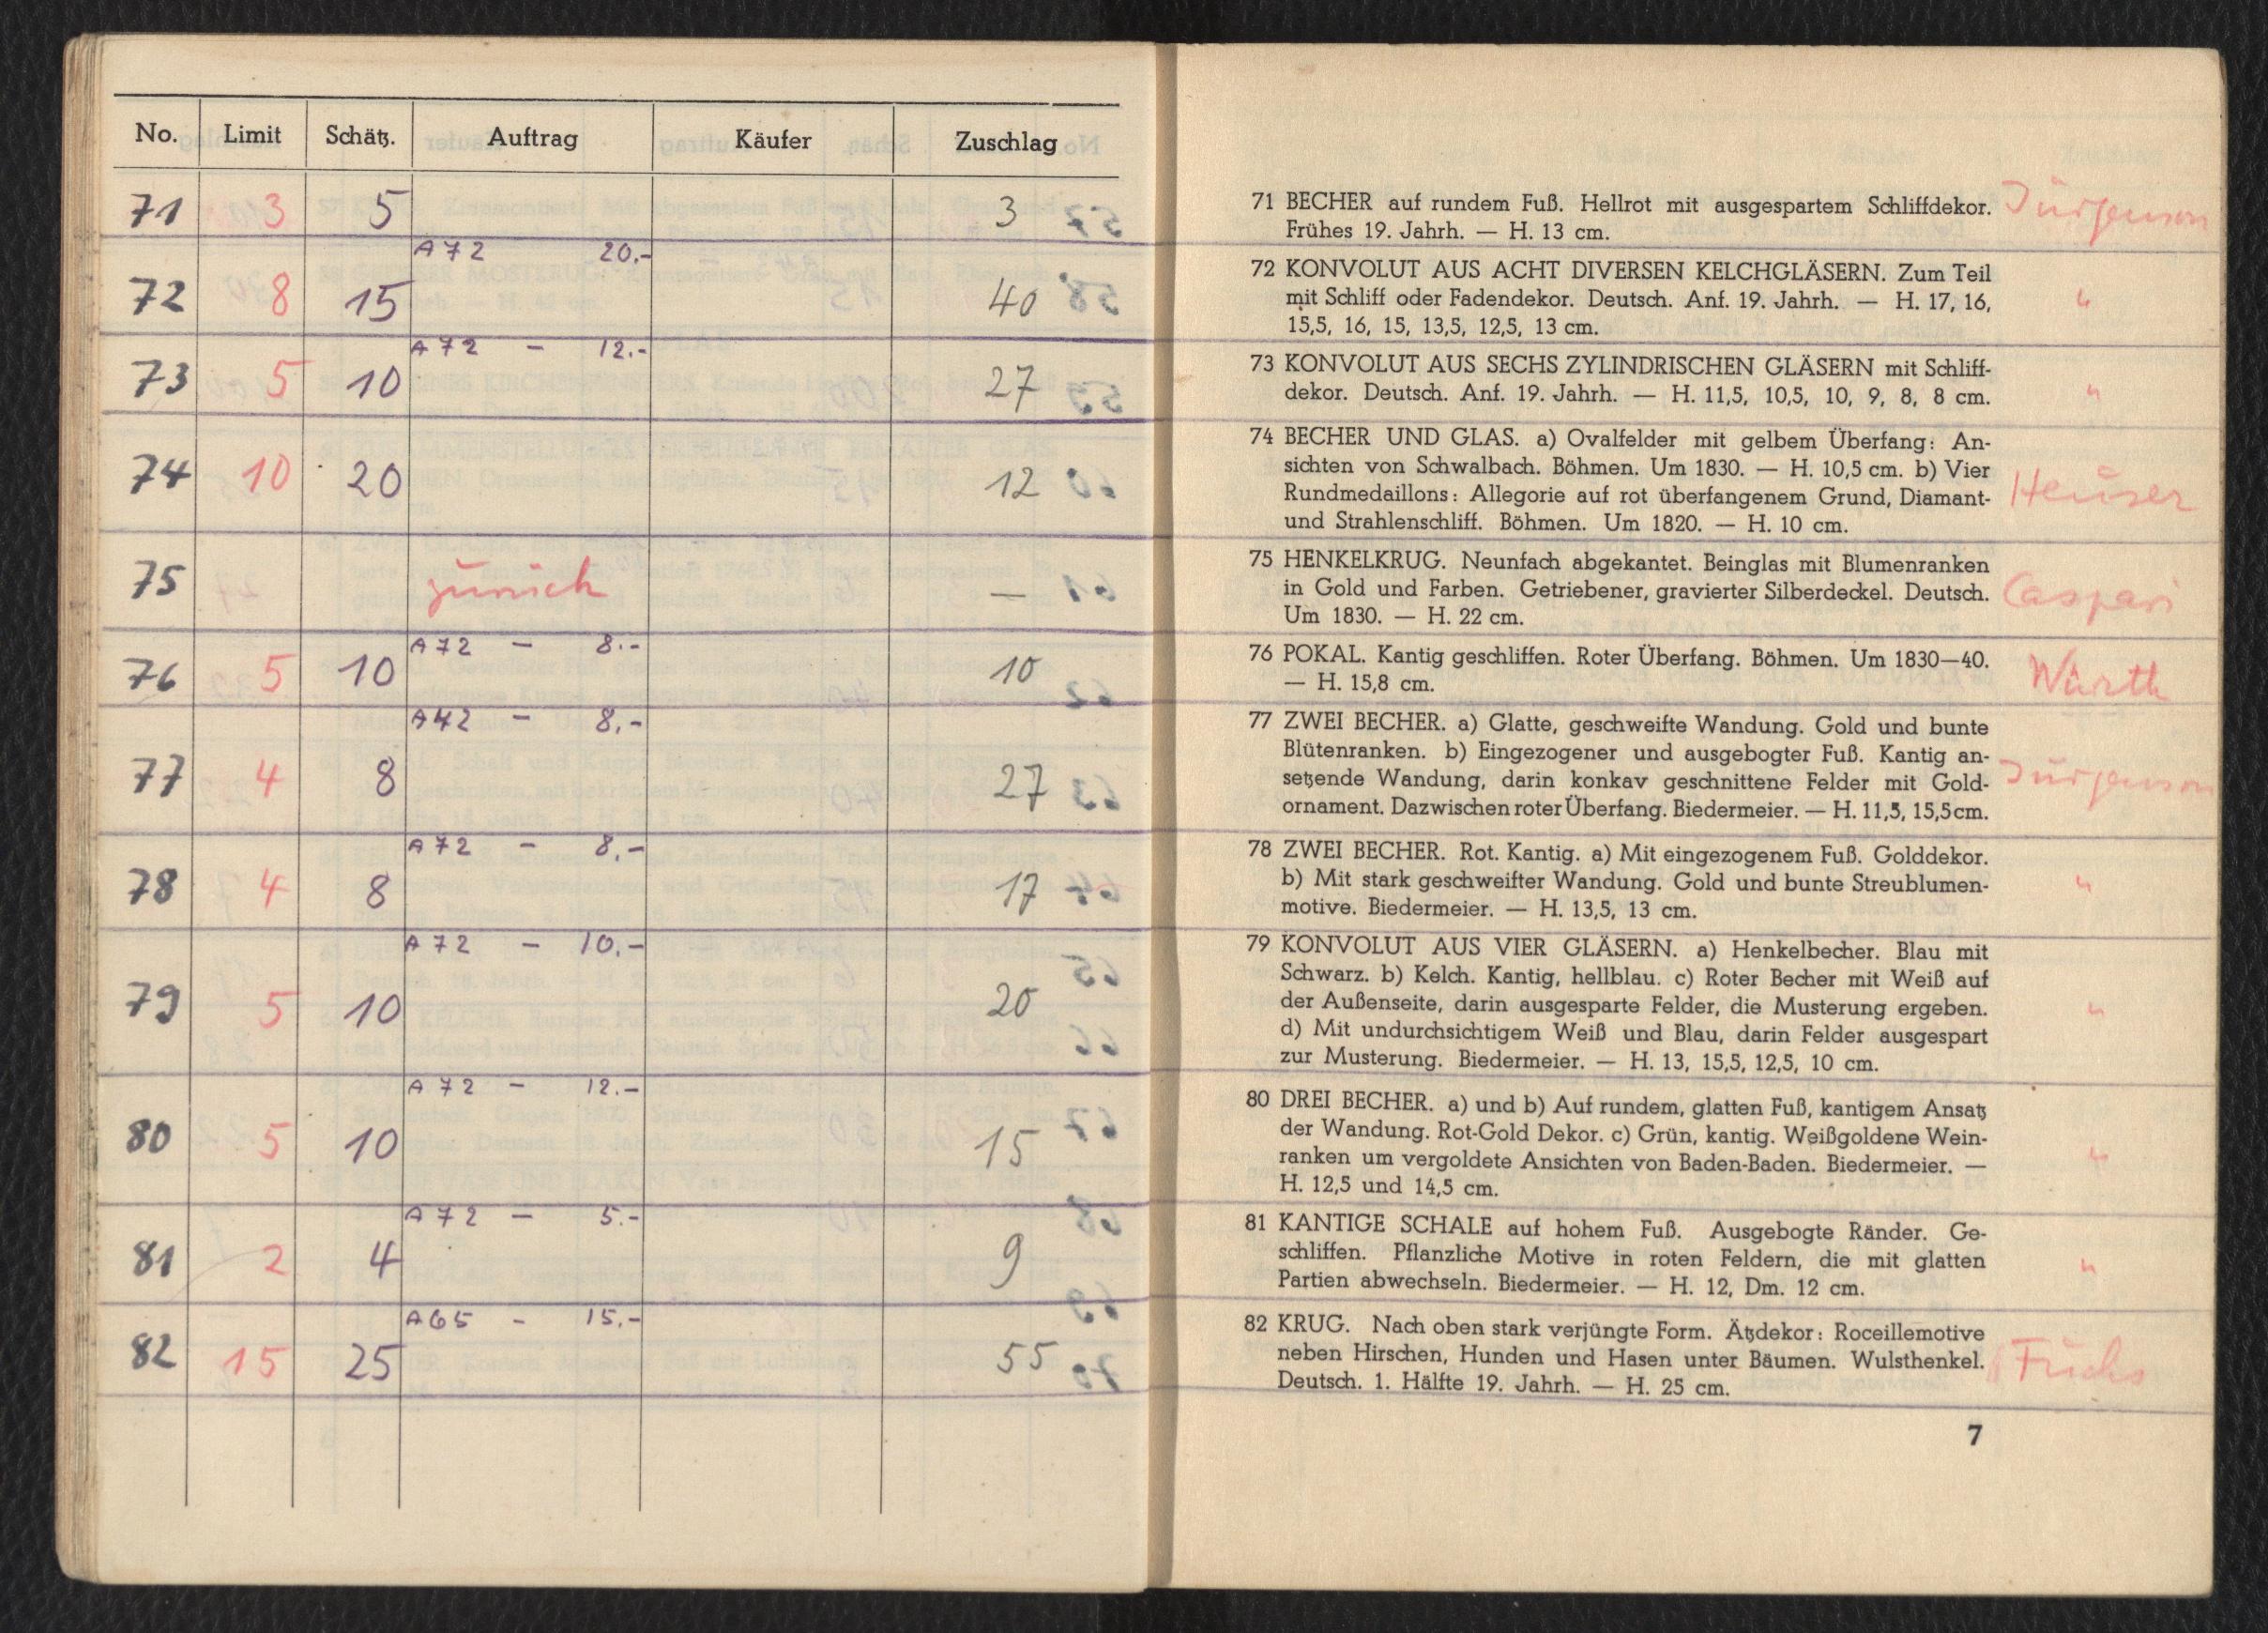 No. Limit Schätz. Auftrag Käufer Zuschlag
71 3 5 3
A72 20.-
72 8 15 40
A72 — 12.-
73 5 10 27
74 10 20 12
75 zurück —
A72 — 8.-
76 5 10 10
A42 — 8,-
77 4 8 27
A72 — 8,-
78 4 8 17
A72 — 10.-
79 5 10 20
A72 — 12.-
80 5 10 15
A72 — 5.-
81 2 4 9
A65 - 15.-
82 15 25 55
71 BECHER auf rundem Fuß. Hellrot mit ausgespartem Schliffdekor. Jürgenson
Frühes 19. Jahrh. — H. 13 cm.
72 KONVOLUT AUS ACHT DIVERSEN KELCHGLÄSERN. Zum Teil
mit Schliff oder Fadendekor. Deutsch. Anf. 19. Jahrh. — H. 17, 16, "
15,5, 16, 15, 13,5, 12,5, 13 cm.
73 KONVOLUT AUS SECHS ZYLINDRISCHEN GLÄSERN mit Schliff-
dekor. Deutsch. Anf. 19. Jahrh. — H. 11,5, 10,5, 10, 9, 8, 8 cm. "
74 BECHER UND GLAS. a) Ovalfelder mit gelbem Überfang: An-
sichten von Schwalbach. Böhmen. Um 1830. — H. 10,5 cm. b) Vier
Rundmedaillons: Allegorie auf rot überfangenem Grund, Diamant- Heuser
und Strahlenschliff. Böhmen. Um 1820. — H. 10 cm.
75 HENKELKRUG. Neunfach abgekantet. Beinglas mit Blumenranken
in Gold und Farben. Getriebener, gravierter Silberdeckel. Deutsch. Caspari
Um 1830. — H. 22 cm.
76 POKAL. Kantig geschliffen. Roter Überfang. Böhmen. Um 1830—40.
— H. 15,8 cm. Würth
77 ZWEI BECHER. a) Glatte, geschweifte Wandung. Gold und bunte
Blütenranken. b) Eingezogener und ausgebogter Fuß. Kantig an-
setzende Wandung, darin konkav geschnittene Felder mit Gold- Jürgenson
ornament. Dazwischen roter Überfang. Biedermeier. — H. 11,5, 15,5 cm.
78 ZWEI BECHER. Rot. Kantig. a) Mit eingezogenem Fuß. Golddekor.
b) Mit stark geschweifter Wandung. Gold und bunte Streublumen- "
motive. Biedermeier. — H. 13,5, 13 cm.
79 KONVOLUT AUS VIER GLÄSERN. a) Henkelbecher. Blau mit
Schwarz. b) Kelch. Kantig, hellblau. c) Roter Becher mit Weiß auf
der Außenseite, darin ausgesparte Felder, die Musterung ergeben. "
d) Mit undurchsichtigem Weiß und Blau, darin Felder ausgespart
zur Musterung. Biedermeier. — H. 13, 15,5, 12,5, 10 cm.
80 DREI BECHER. a) und b) Auf rundem, glatten Fuß, kantigem Ansatz
der Wandung. Rot-Gold Dekor. c) Grün, kantig. Weißgoldene Wein-
ranken um vergoldete Ansichten von Baden-Baden. Biedermeier. — "
H. 12,5 und 14,5 cm.
81 KANTIGE SCHALE auf hohem Fuß. Ausgebogte Ränder. Ge-
schliffen. Pflanzliche Motive in roten Feldern, die mit glatten "
Partien abwechseln. Biedermeier. — H. 12, Dm. 12 cm.
82 KRUG. Nach oben stark verjüngte Form. Ätzdekor: Roceillemotive
neben Hirschen, Hunden und Hasen unter Bäumen. Wulsthenkel. Fuchs
Deutsch. 1. Hälfte 19. Jahrh. — H. 25 cm.
7